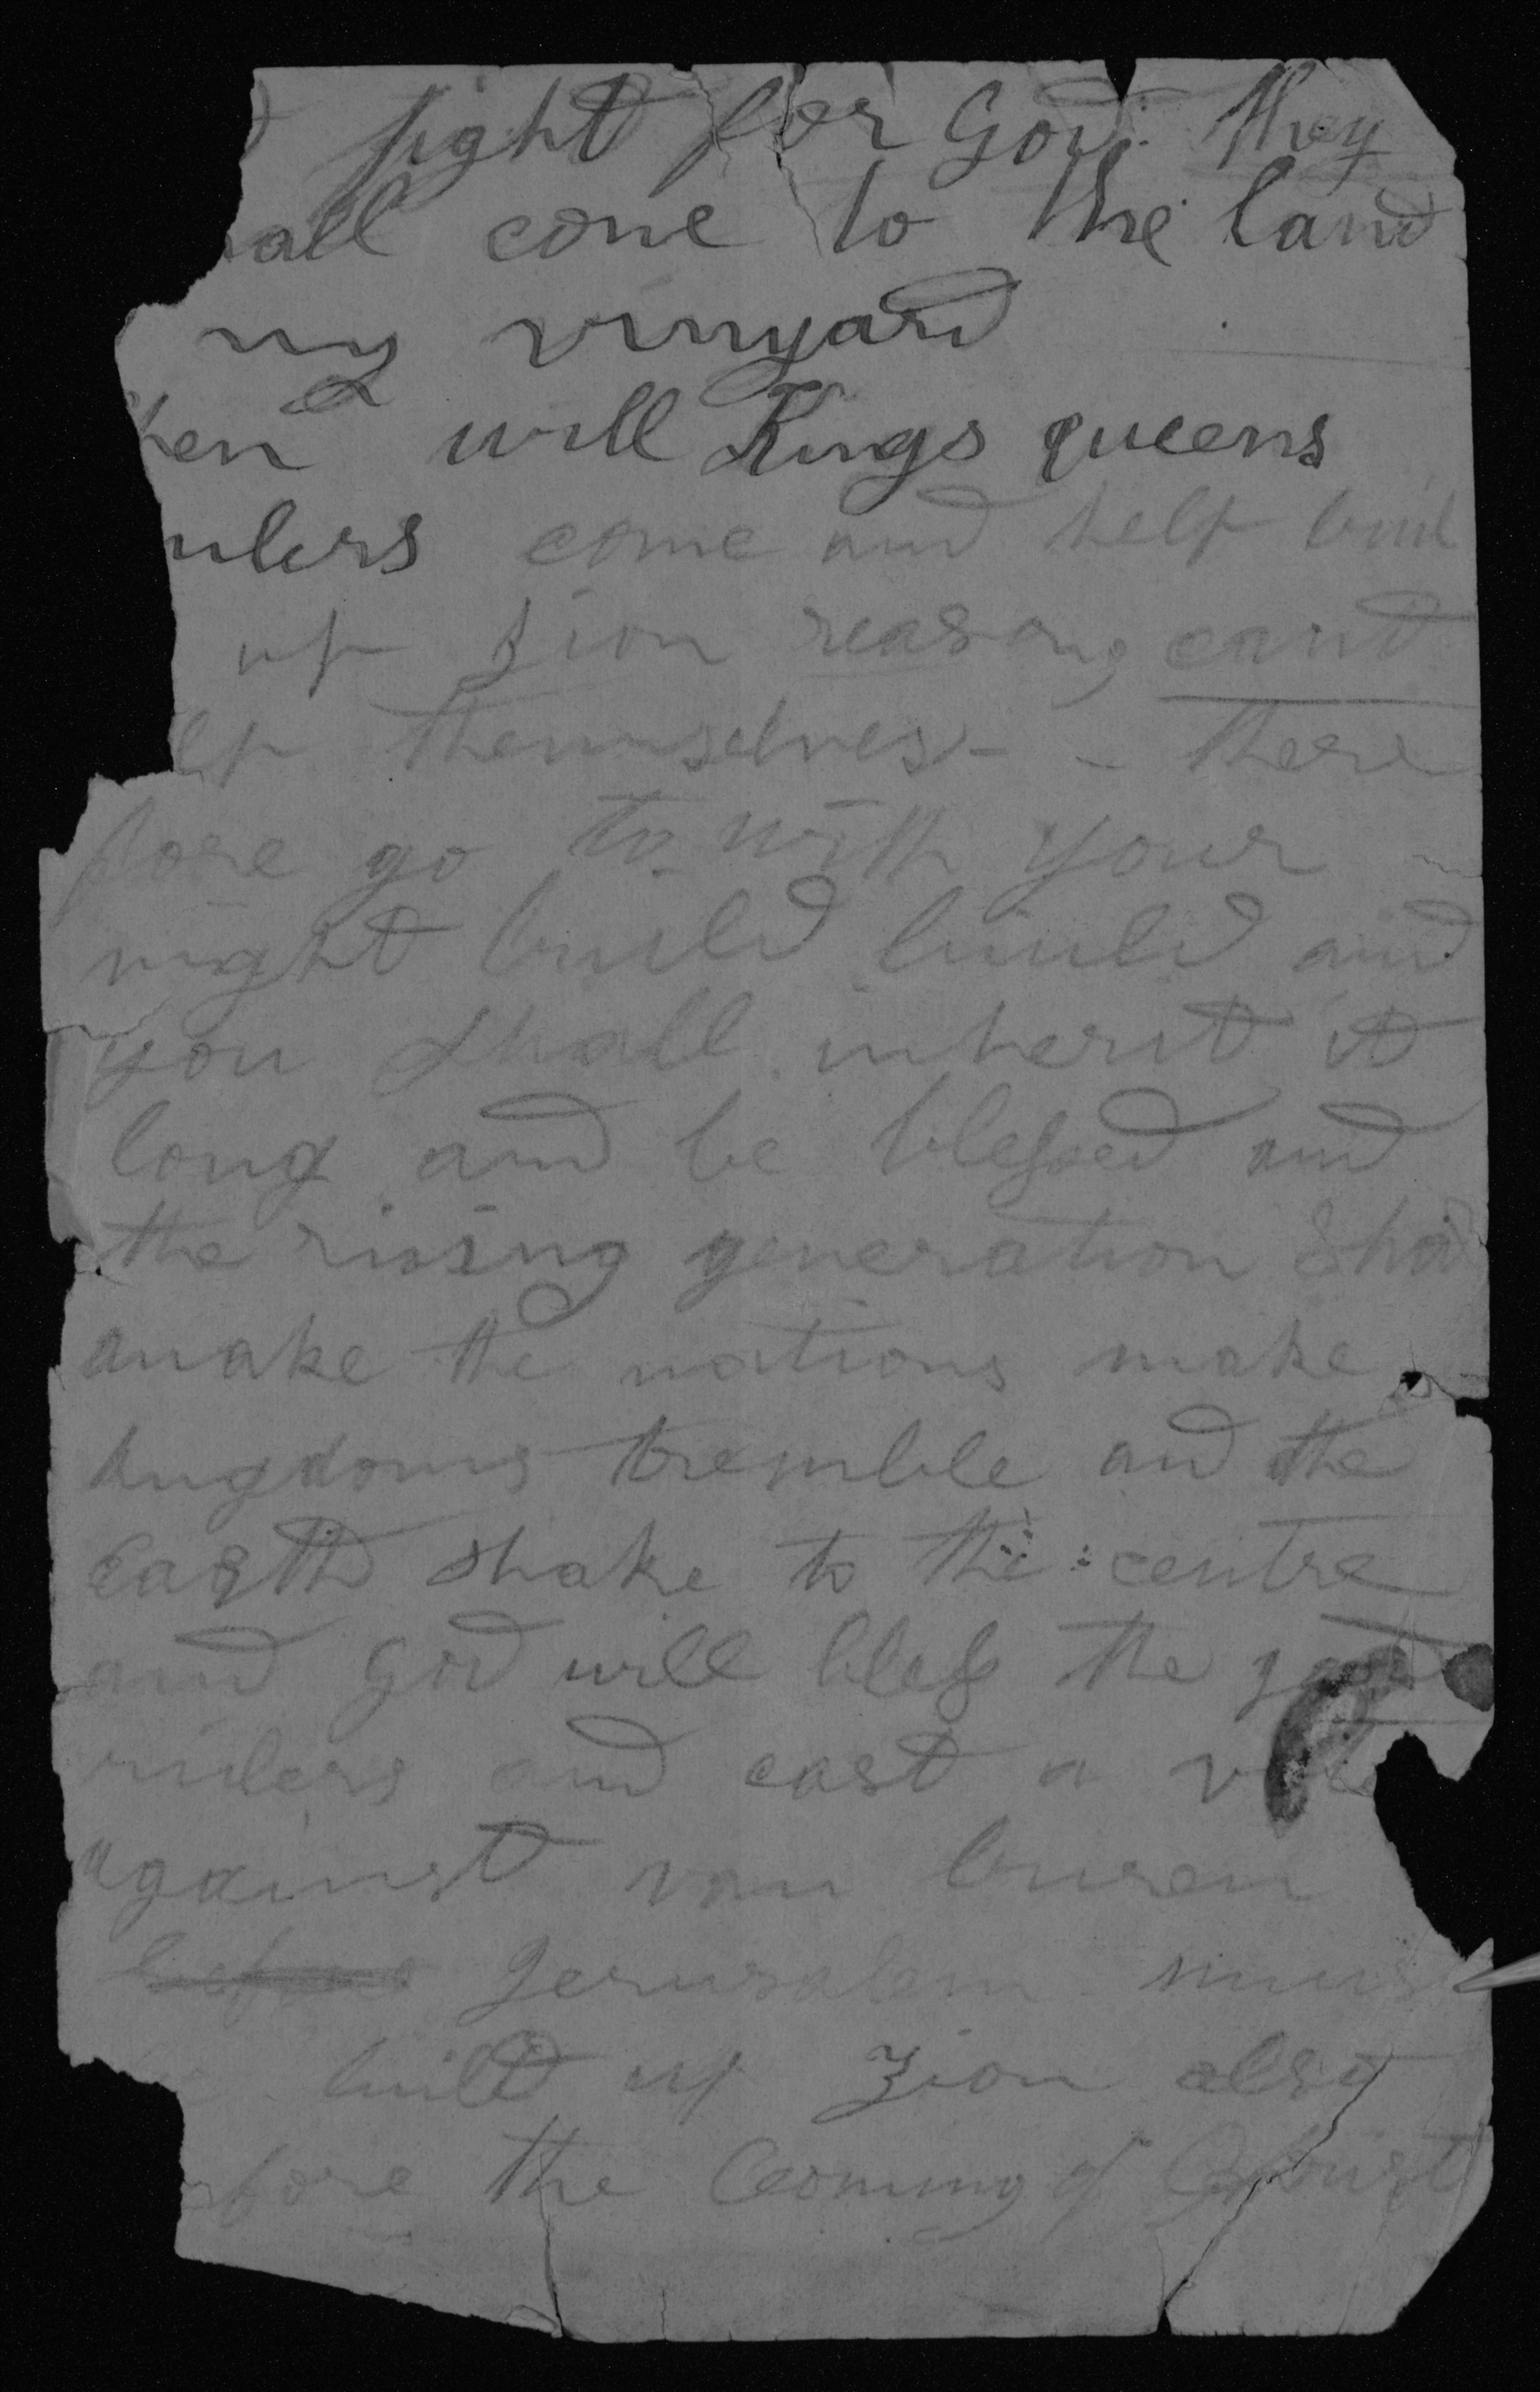 fight for God. they
hall come to the land
my vinyard
hen will Kings queens
ulers come and help buil
up zion reason, cant
elp themselves - - there
fore go to with your
might build build and
you shall inherit it
long and be blessed and
the rising generation shal
make the nations make
kingdoms tremble and the
Earth shake to the centre
and God will bless the good
rulers and cast a vote
against van buren
before Jerusalem must
build up Zion also
efore the Coming of Christ